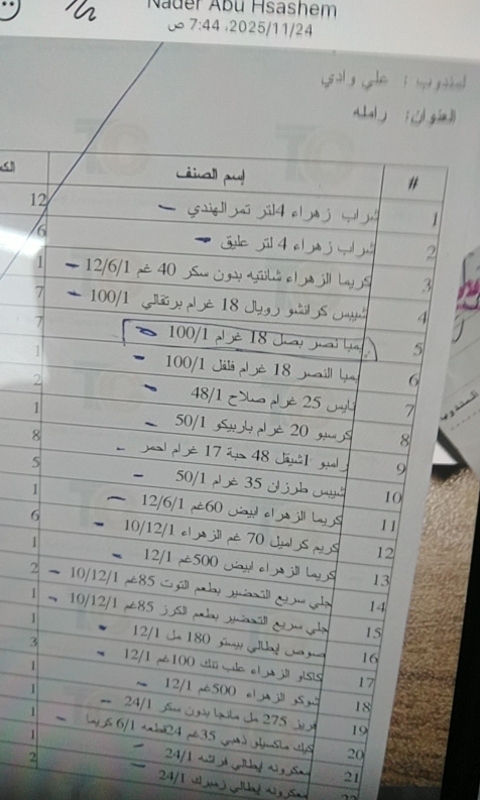 Nader Abu Hsashem
2025/11/24، 7:44 ص
المندوب : علي وادي
العنوان: رامله
# إسم الصنف الك
1 شراب زهراء 4لتر تمرالهندي 12
2 شراب زهراء 4 لتر عليق 6
3 كريما الزهراء شانتيه بدون سكر 40 غم 12/6/1 1
4 شيبس كرانشو رويال 18 غرام برتقالي 100/1 7
5 يمبا نصر بصل 18 غرام 100/1 7
6 يمبا النصر 18 غرام فلفل 100/1 1
7 تايس 25 غرام صلاح 48/1 2
8 كرسبو 20 غرام باربيكو 50/1 1
9 رامبو اشيقل 48 حبة 17 غرام احمر 8
10 شيبس طرزان 35 غرام 50/1 5
11 كريما الزهراء ابيض 60غم 12/6/1 1
12 كريم كراميل 70 غم الزهراء 10/12/1 6
13 كريما الزهراء ابيض 500غم 12/1 1
14 جلي سريع التحضير بطعم التوت 85غم 10/12/1 2
15 جلي سريع التحضير بطعم الكرز 85غم 10/12/1 1
16 صوص إيطالي بيستو 180 مل 12/1 1
17 كاكاو الزهراء علب تنك 100غم 12/1 3
18 شوكو الزهراء 500غم 12/1 1
19 فريز 275 مل مانجا بدون سكر 24/1 1
20 كيك ماكسيلو ذهبي 35غم 24قطعه 6/1 كريما 1
21 معكرونه إيطالي فراشه 24/1 1
22 معكرونه إيطالي زمبرك 24/1 2